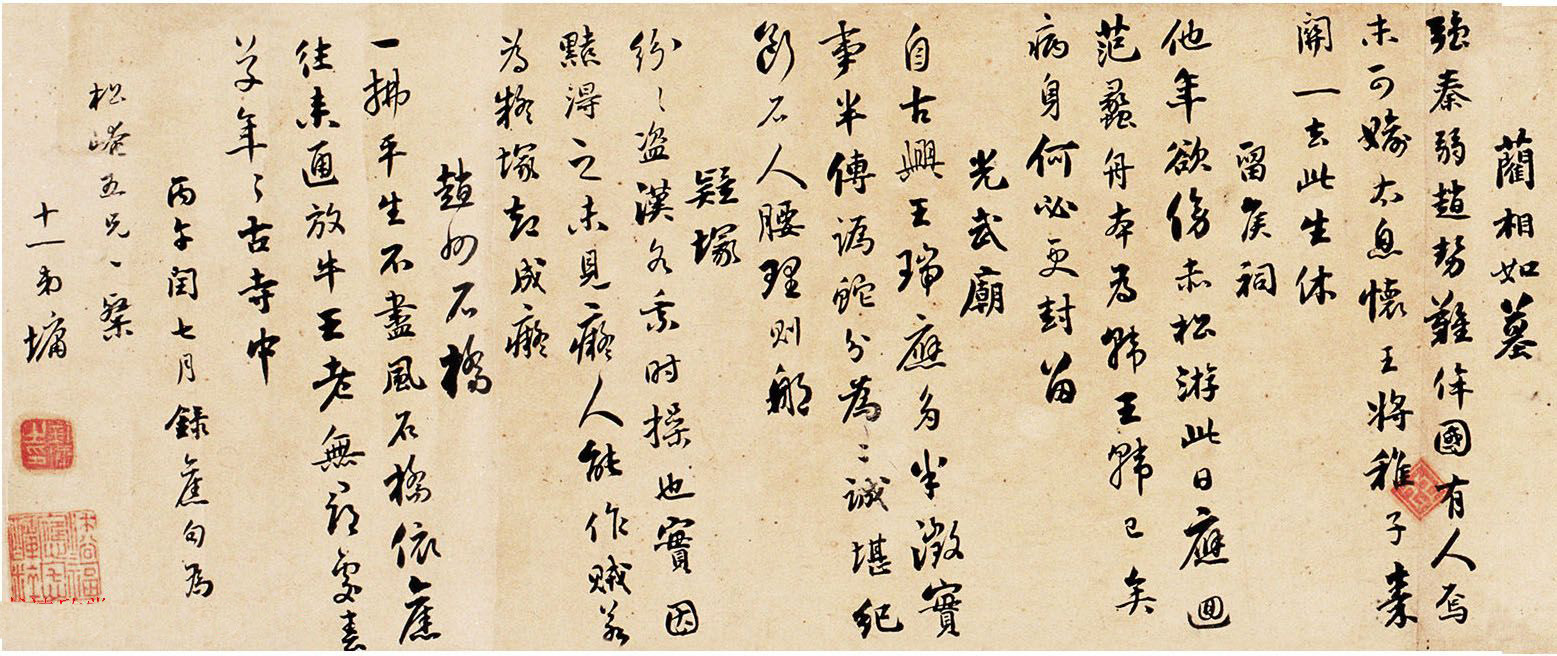 藺相如墓
強秦弱趙勢難侔國有人焉
未可媮太息懷王將稚子秦
關一去此生休
留侯祠
他年欲傍赤松游此日應迴
范蠡舟本為韓王韓已矣
病身何必更封留
光武廟
自古興王瑞應多半徵實
事半傳譌蛇分為二誠堪紀
斷石人腰理則那
疑塚
紛〻盜漢各乘時操也實因
黠得之未見癡人能作賊若
為疑塚却成癡
趙州石橋
一拂平生不盡風石橋依舊
往來通放牛王老無尋處春
草年〻古寺中
丙午閏七月錄舊句為
松崦五兄一粲
十一弟墉